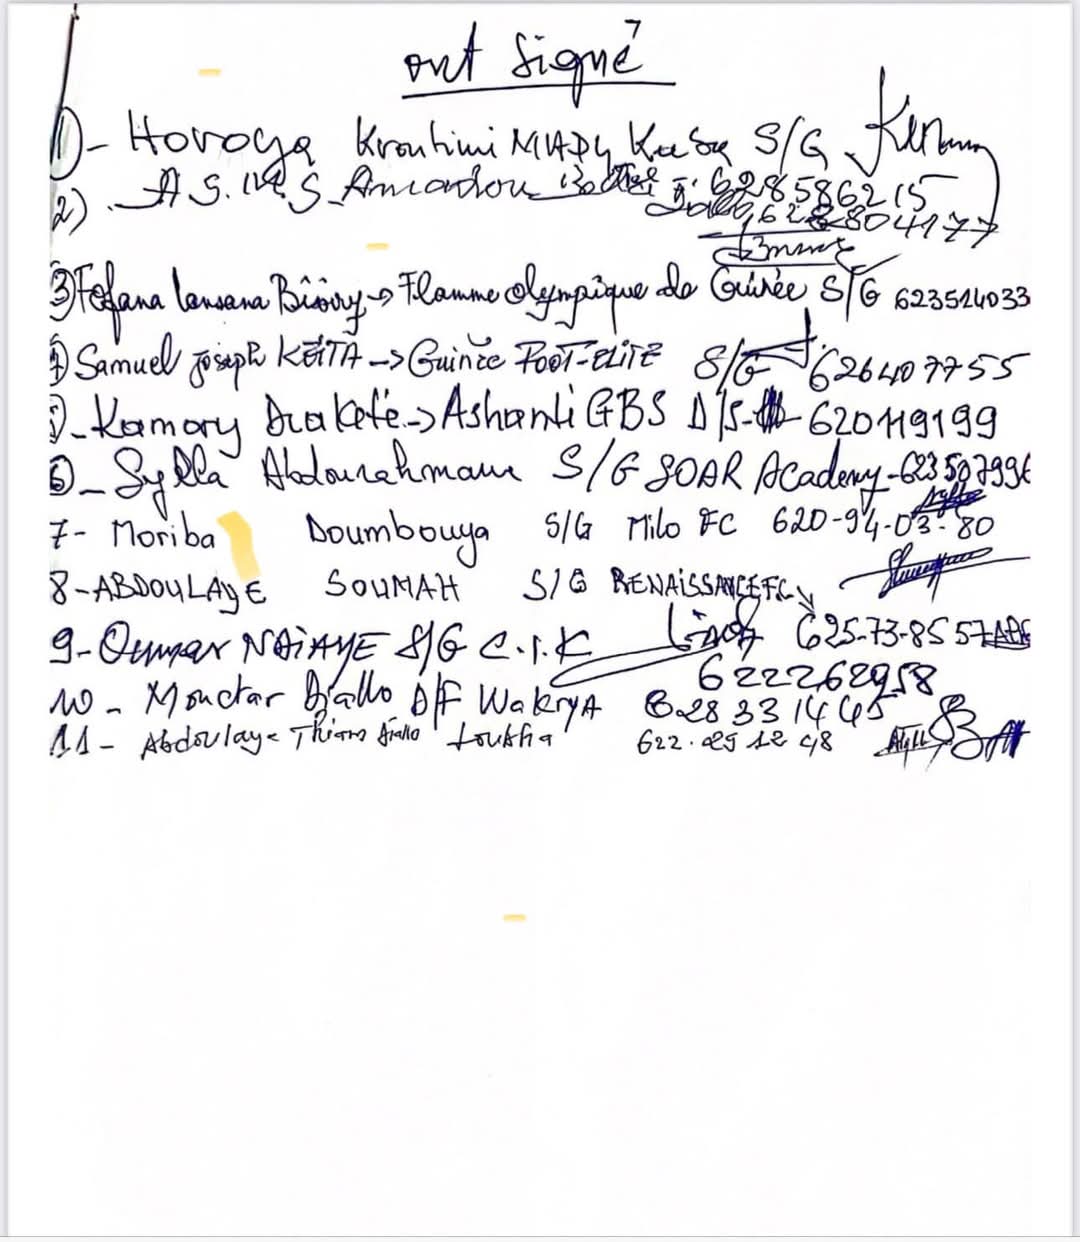 ont signé
1)- Horoya Kroutimi MADY Kaba S/G
2). A.S. M.E.S Amadou 628586215
628804177
3) Fofana Lansana Bissiry → Flamme olympique de Guinée S/G 623514033
4) Samuel Joseph KEITA → Guinée FOOT-ELITE S/G 626407755
5)- Kamory Diakité → Ashanti GBS D/S- 620119199
6)- Sylla Abdourahmane S/G SOAR Academy - 623507996
7- Moriba Doumbouya S/G Milo FC 620-94-03-80
8- ABDOULAYE SOUMAH S/G RENAISSANCE FC
9- Oumar NDiAYE S/G C.I.K 625-73-85 57
622262958
10- Mouctar Diallo D/F WakryA 628 33 14 45
11- Abdoulaye Thiam Diallo Loubha 622.25 12 48